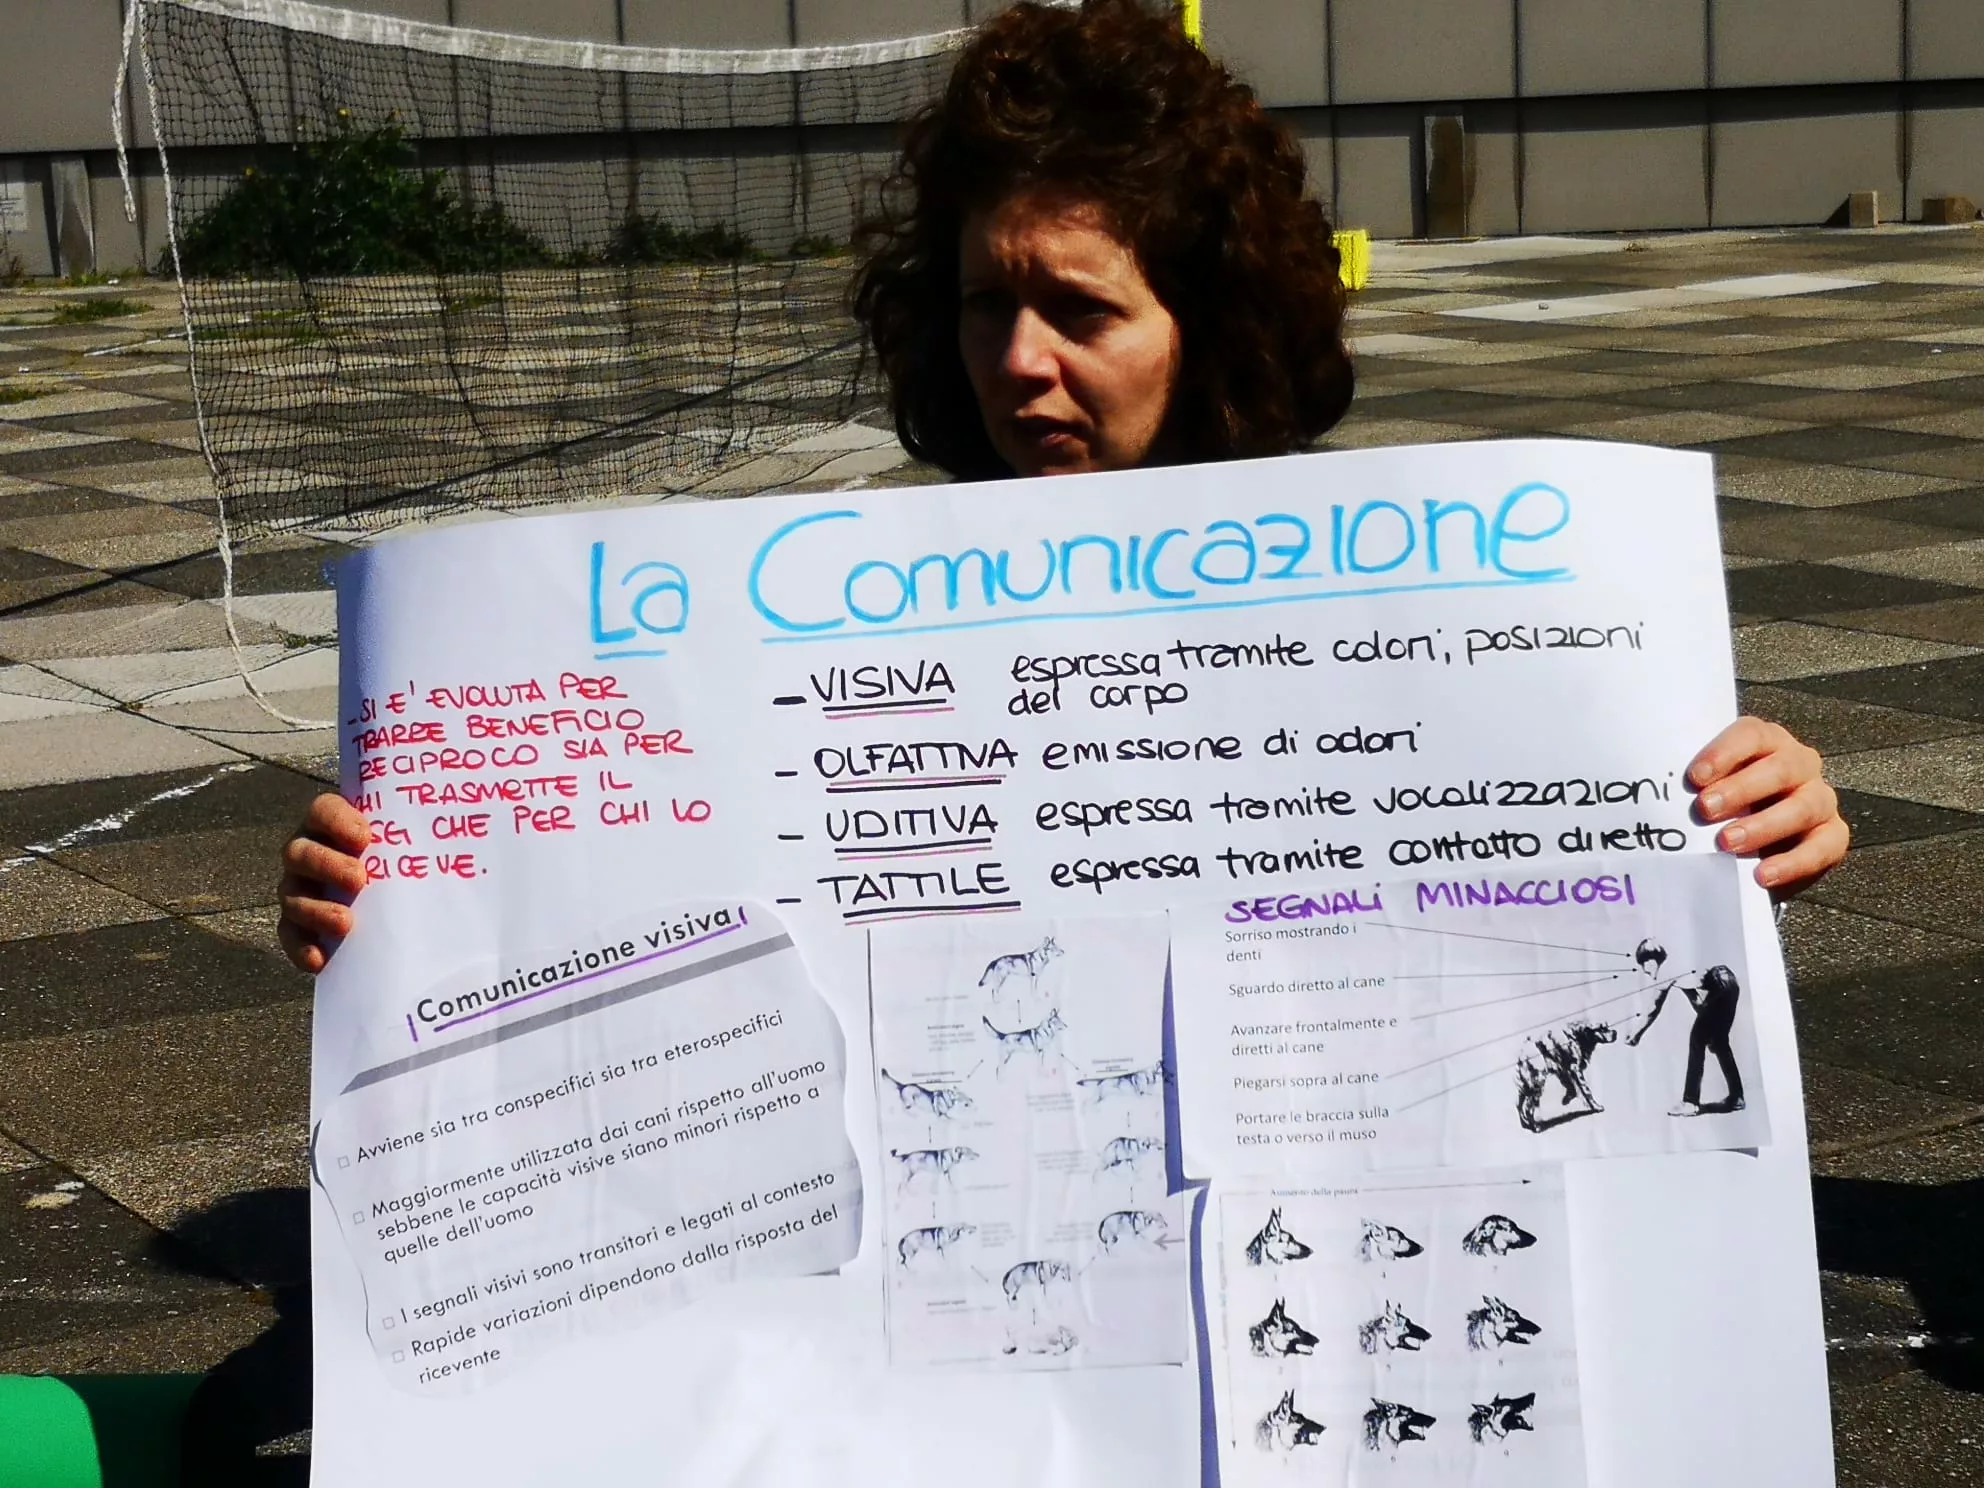 La Comunicazione
- SI E' EVOLUTA PER
TRARRE BENEFICIO
RECIPROCO SIA PER
CHI TRASMETTE IL
CHE PER CHI LO
RICEVE.
- VISIVA espressa tramite colori, posizioni
del corpo
- OLFATTIVA emissione di odori
- UDITIVA espressa tramite vocalizzazioni
- TATTILE espressa tramite contatto diretto
Comunicazione visiva
Avviene sia tra conspecifici sia tra eterospecifici
Maggiormente utilizzata dai cani rispetto all'uomo
sebbene le capacità visive siano minori rispetto a
quelle dell'uomo
I segnali visivi sono transitori e legati al contesto
Rapide variazioni dipendono dalla risposta del
ricevente
SEGNALI MINACCIOSI
Sorriso mostrando i
denti
Sguardo diretto al cane
Avanzare frontalmente e
diretti al cane
Piegarsi sopra al cane
Portare le braccia sulla
testa o verso il muso
Aumento della paura